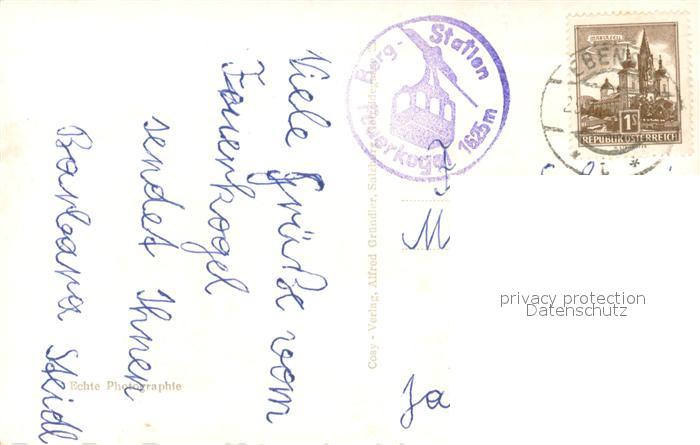 Viele Grüße vom
Feuerkogel
sendet Ihnen
Barbara Steidl
Echte Photographie
Cosy - Verlag, Alfred Gründler, Salzb
Berg-Station
Feuerkogel 1625m
EBEN
1S
REPUBLIK ÖSTERREICH
M
Ja
privacy protection
Datenschutz